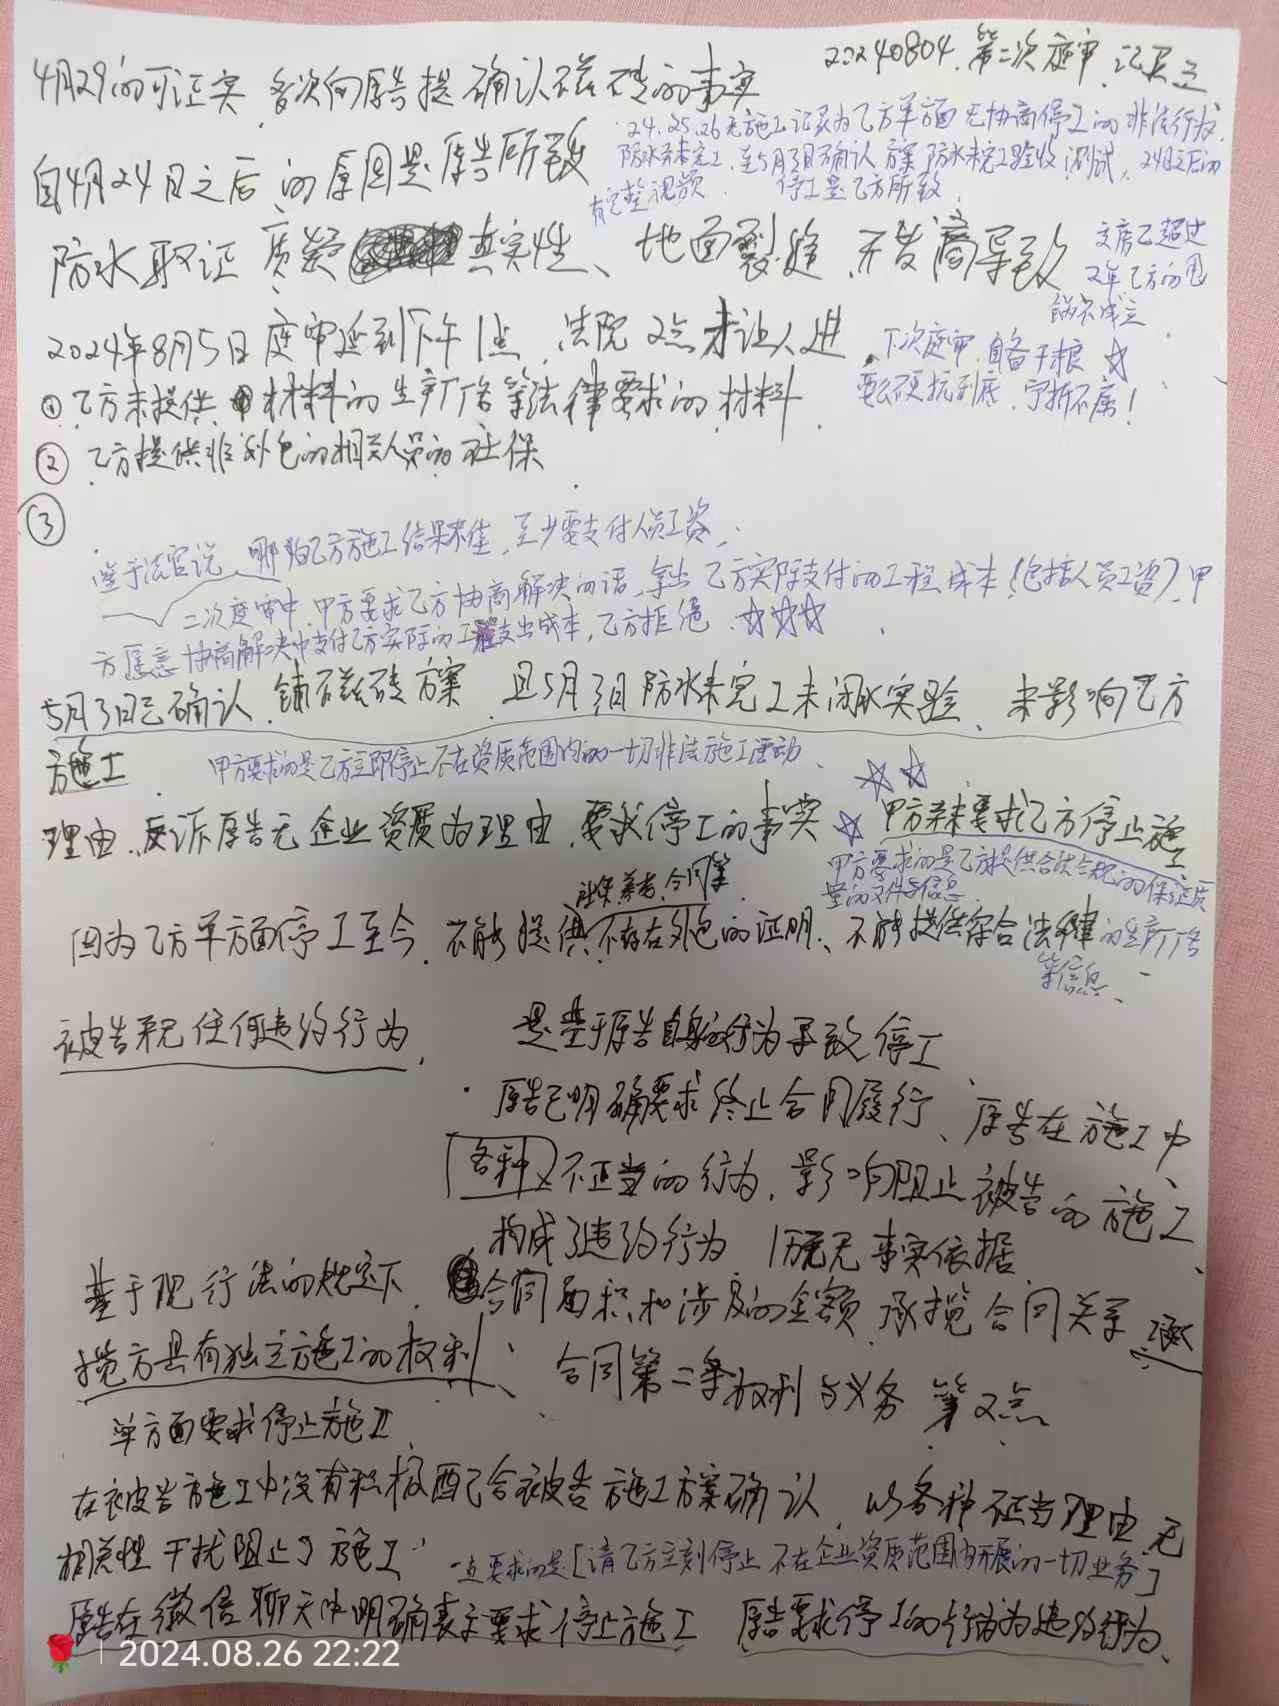 20240804.第二次庭审.记录
4月29的可证实 多次向原告提确认瓷砖的事实
24.25.26无施工记录为乙方单方面无协商停工的非法行为.
自4月24日之后的原因是原告所致
防水未完工.至5月3日确认方案防水未完工验收,测试,24日之后的
有完整视频. 停工是乙方所致
防水取证 质疑 真实性、地面裂缝.开发商导致
交房已超过
2年乙方的甩
锅不成立
2024年8月5日庭审延到下午1点.法院2点才让人进.
下次庭审.自备干粮 ☆
要么硬抗到底.宁折不屈!
① 乙方未提供 材料的生产厂名等法律要求的材料
② 乙方提供非外包的相关人员的社保
③
鉴于法官说.哪怕乙方施工结果不佳,至少要支付人员工资,
二次庭审中.甲方要求乙方协商解决的话,拿出乙方实际支付的工程成本(包括人员工资),甲
方愿意协商解决中支付乙方实际的工程支出成本,乙方拒绝.☆☆☆
5月3日已确认.铺瓷砖方案.且5月3日防水未完工未闭水实验、未影响乙方
施工.
甲方要求的是乙方立即停止不在资质范围内的一切非法施工活动.
理由.反诉原告无企业资质为理由.要求停工的事实 ☆☆☆ 甲方未要求乙方停止施工
甲方要求的是乙方提供合法合规的保证质
量的文件与信息.
社保.合同等
因为乙方单方面停工至今.不能提供不存在外包的证明、不能提供符合法律的生产厂名
等信息、
被告无任何违约行为.
是基于原告自身的行为导致停工
原告已明确要求终止合同履行、原告在施工中
各种 不正当的行为,影响阻止被告的施工、
构成了违约行为 1万元无事实依据
基于现行法的规定下. 合同面积和涉及的金额.承揽合同关系.承
揽方具有独立施工的权利、 合同第二条权利与义务 第2点
单方面要求停止施工
在被告施工中没有积极配合被告施工方案确认.以各种不正当理由.无
相关性干扰阻止了施工.
一直要求的是[请乙方立刻停止不在企业资质范围内开展的一切业务]
原告在微信聊天中明确表示要求停止施工 原告要求停工的行为为违约行为、
2024.08.26 22:22